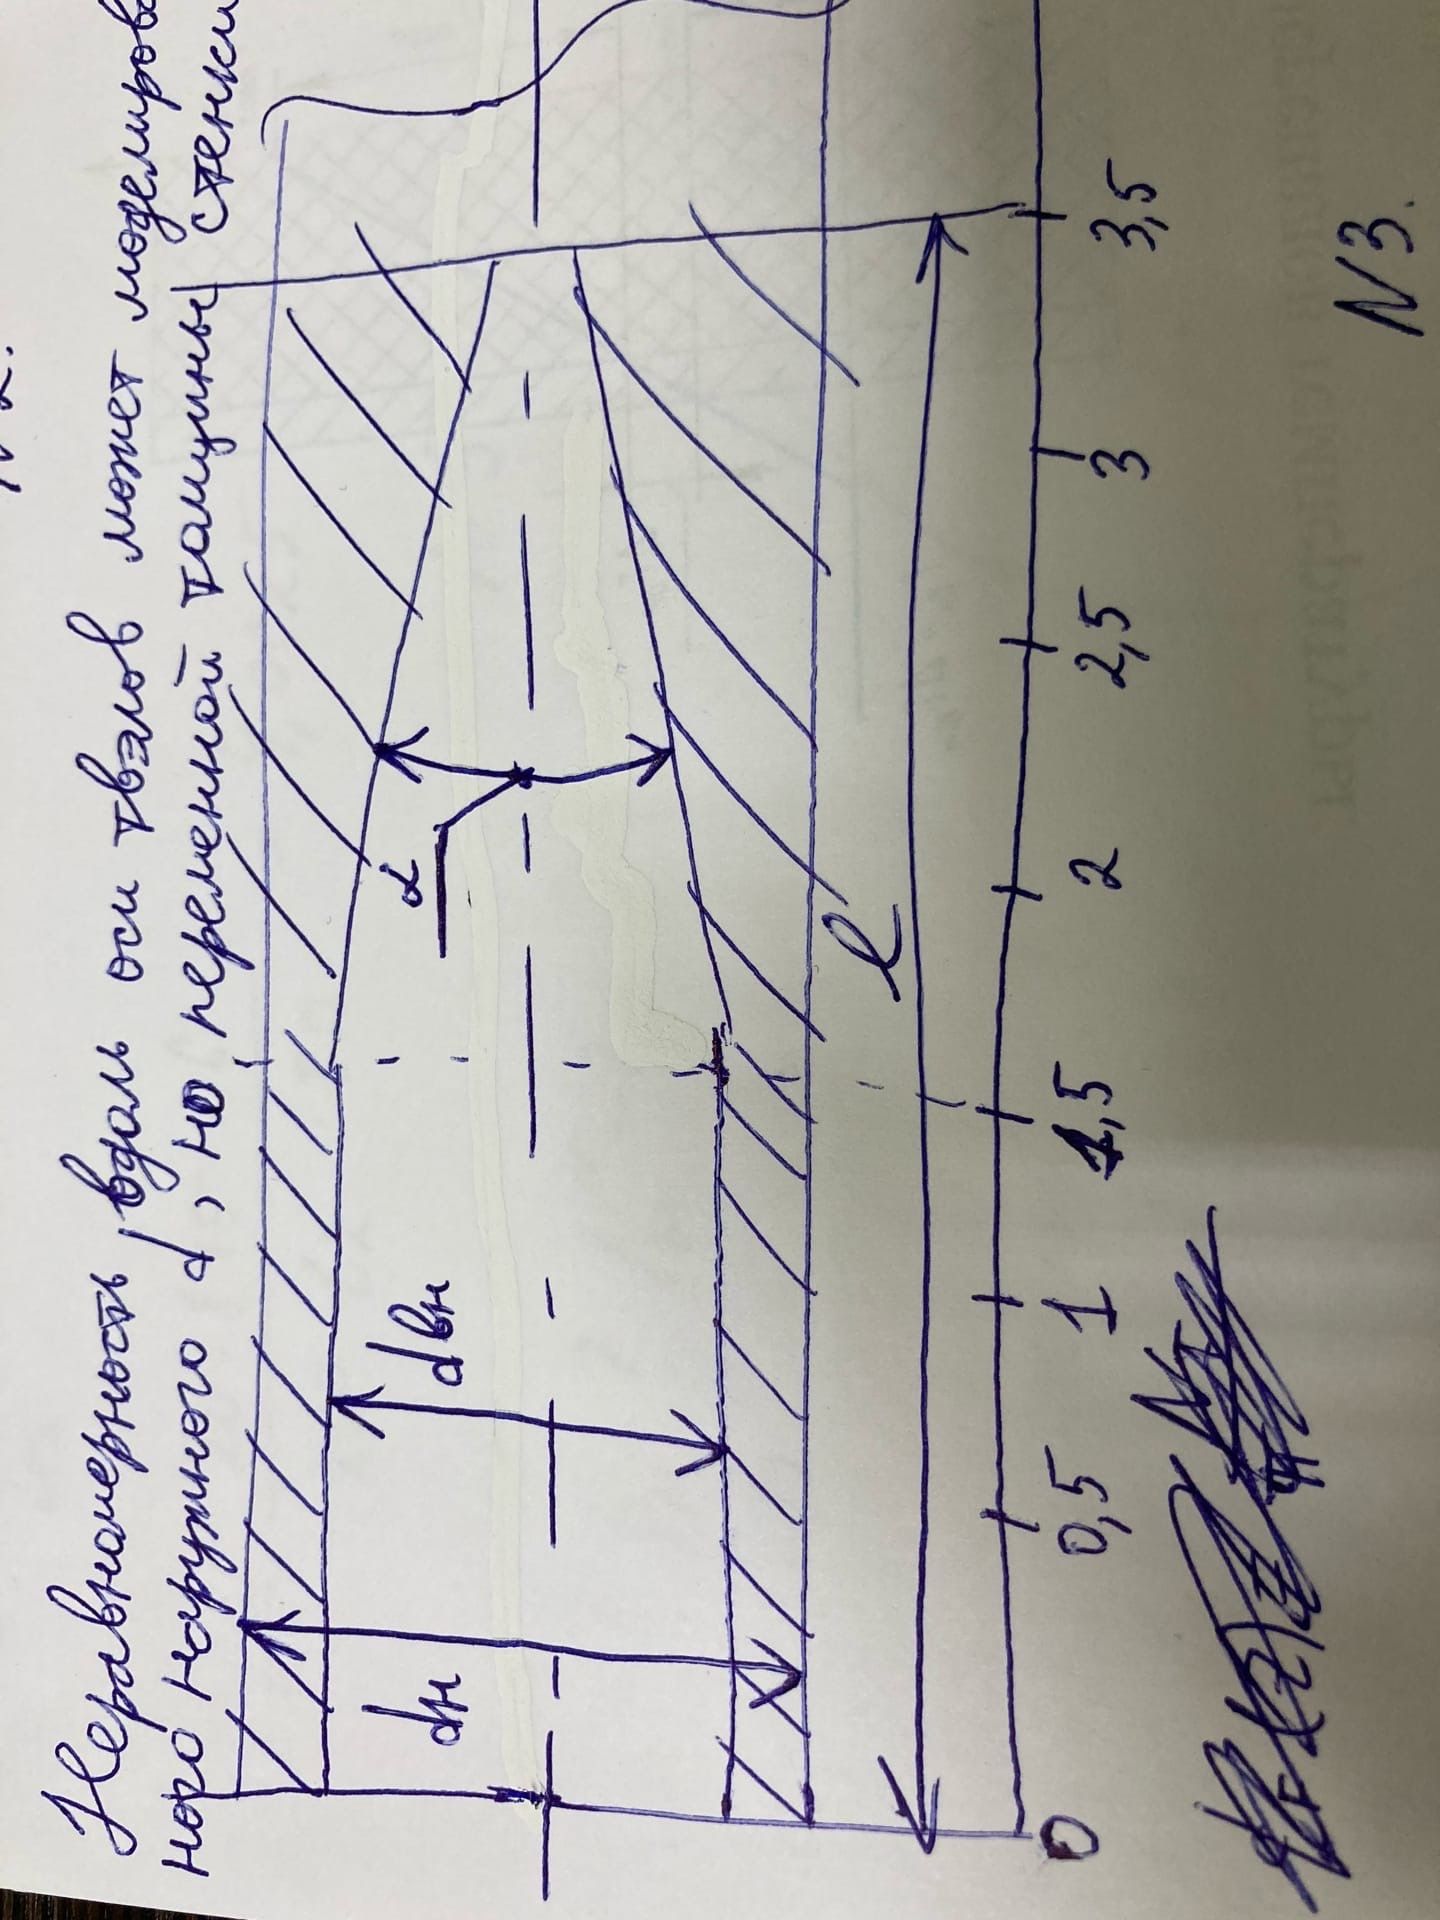 Неравномерность вдоль оси твэлов может моделиров
ного наружного d, но переменной толщины стенки
dн
dвн
α
l
0 0,5 1 1,5 2 2,5 3 3,5
N3.